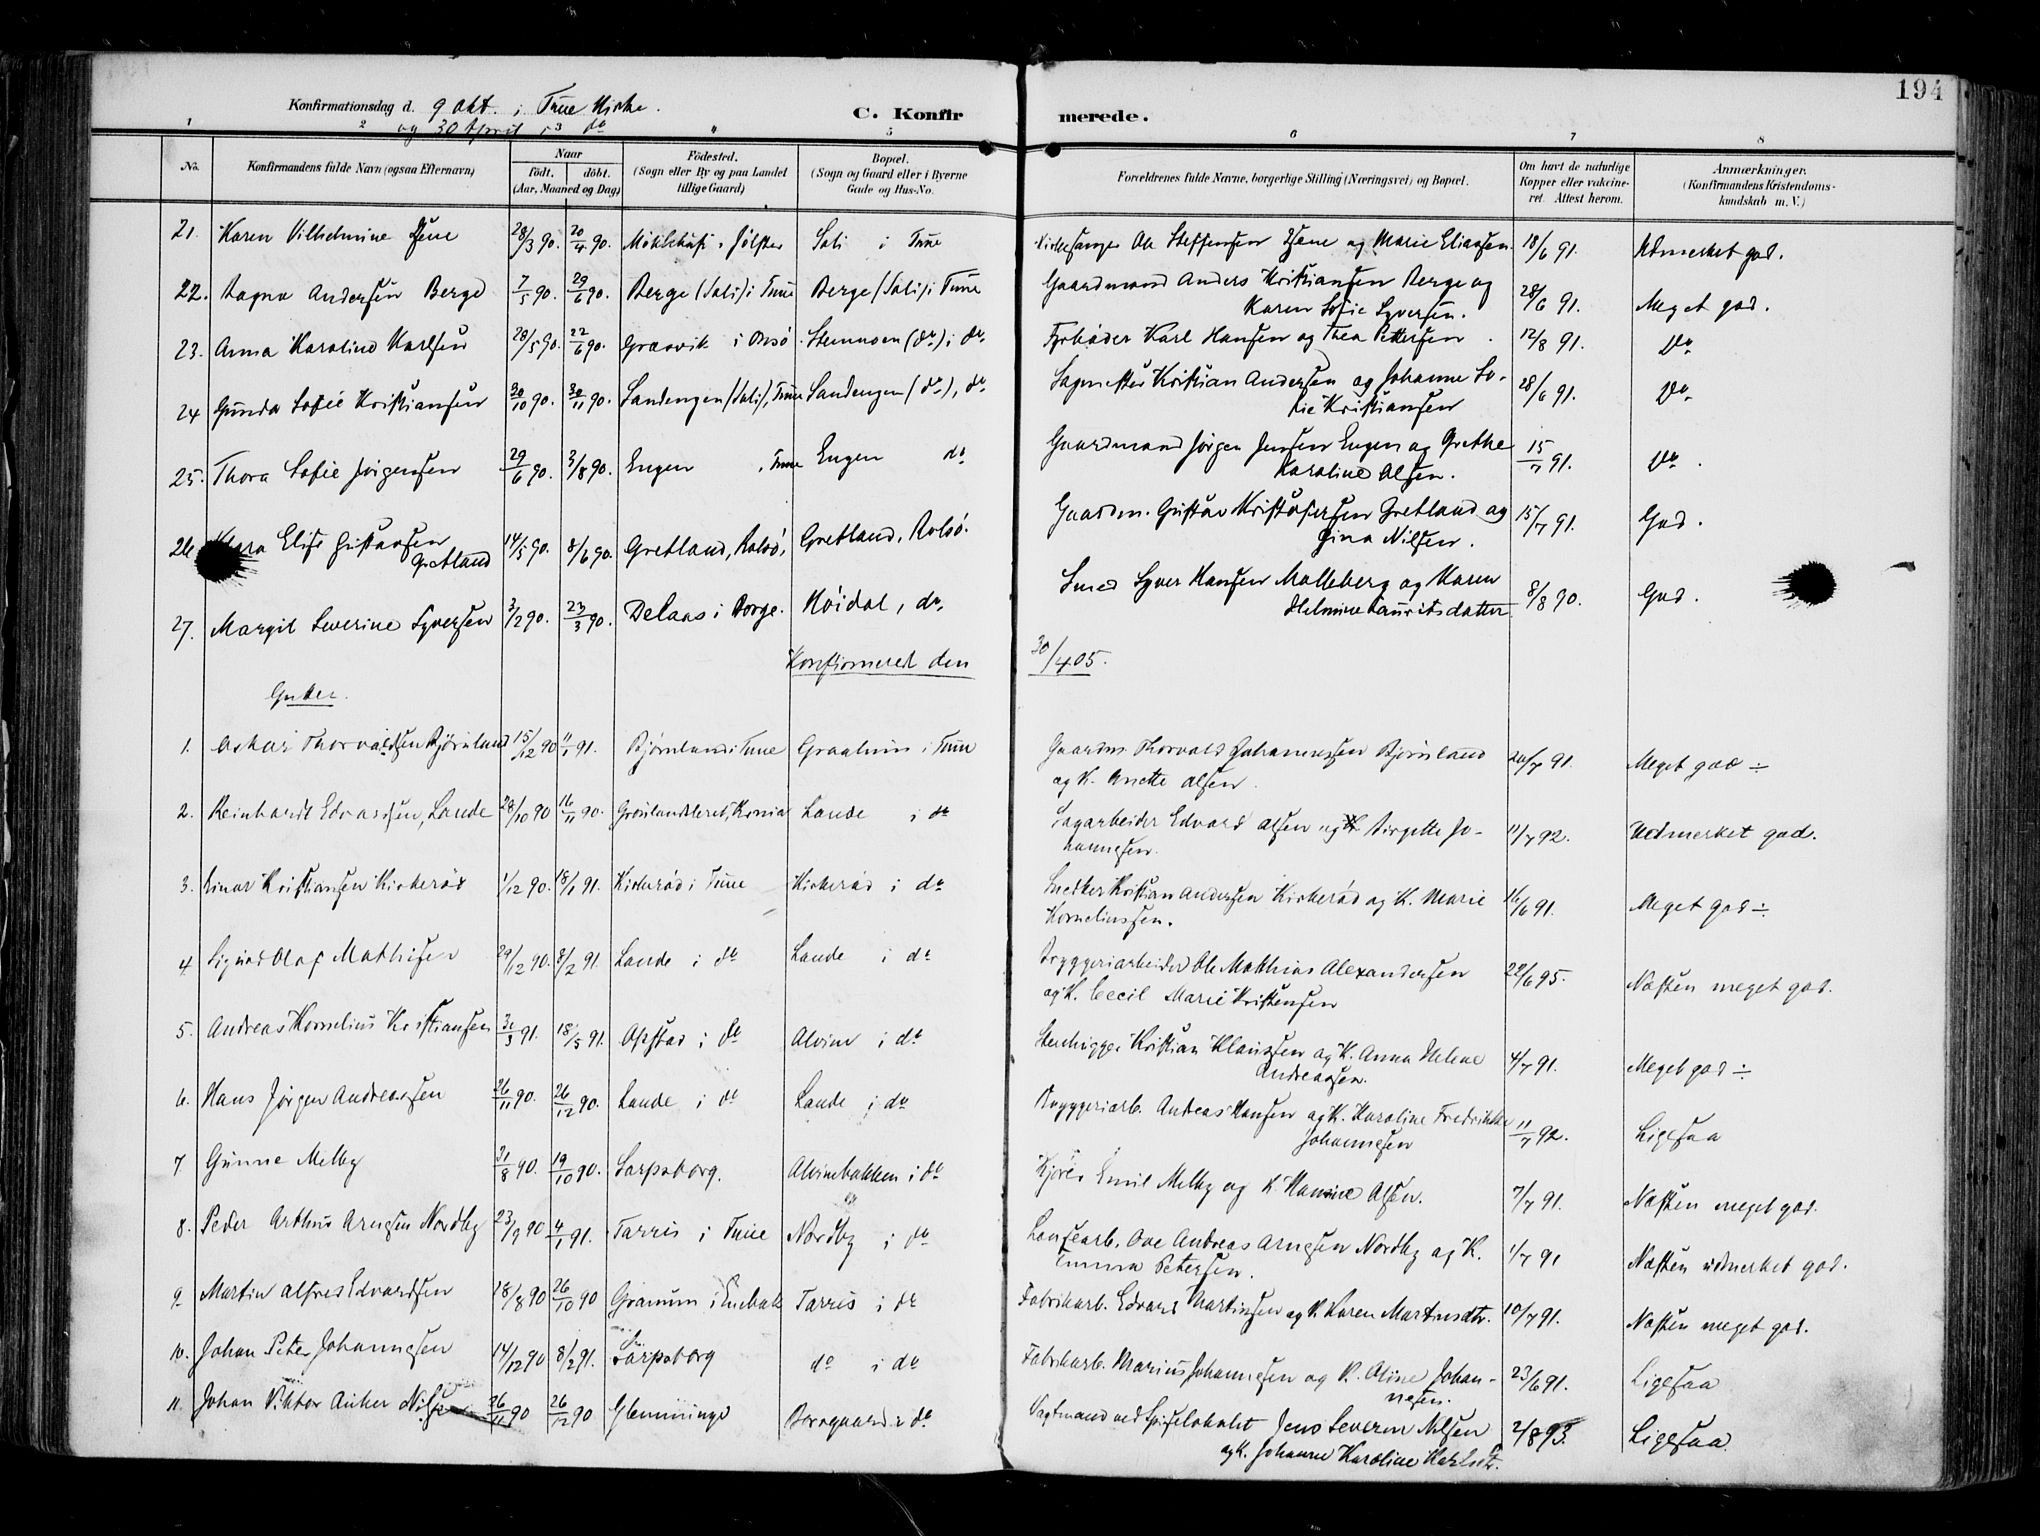 194
Konfirmationsdag d. 9 Okt. i Tune Kirke.
og 30 April i do
C. Konfirmerede.
1 2 3 4 5 6 7 8
No. Konfirmandens fulde Navn (ogsaa Efternavn) Naar födt. döbt. (Aar, Maaned og Dag) Födested. (Sogn eller By og paa Landet tillige Gaard) Bopæl. (Sogn og Gaard eller i Byerne Gade og Hus-No. Forældrenes fulde Navne, borgerlige Stilling (Næringsvei) og Bopæl. Om havt de naturlige Kopper eller vakcineret. Attest herom. Anmærkninger. (Konfirmandens Kristendomskundskab m. V.)
21. Karen Vilhelmine 28/3 90. 20/4 90. i Jølster Soli i Tune Kirkesanger Ole Steffensen og Marie Eliassen 18/6 91. Udmerket god.
22. Ragna Andersen Berge 7/5 90. 29/6 90. Berge (Soli) i Tune Berge (Soli) i Tune Gaardmand Anders Kristiansen Berge og
Karen Sofie Syversen. 28/6 91. Meget god.
23. Anna Karoline Karlsen 28/5 90. 22/6 90. Græsvik i Onsö Stenmoen (do) i do Fyrbøder Karl Hansen og Thea Pettersen. 12/8 91. Do
24 Gunda Sofie Kristiansen 30/10 90. 30/11 90. Sandengen (Soli), Tune Sandengen (do), do Sagmester Kristian Andersen og Johanne So-
fie Kristiansen 28/6 91. Do
25. Thora Sofie Jörgensen 29/6 90. 3/8 90. Engen i Tune Engen do Gaardmand Jörgen Jensen Engen og Grethe
Karoline Olsen. 15/7 91. Do.
26. Elise Gustavsen
Gretland 14/5 90. 8/6 90. Gretland, Rolsö, Gretland, Rolsö. Gaardm. Gustav Kristofersen Gretland og
Gina Nilsen. 15/7 91. God.
27. Margit Severine Syversen 3/2 90. 23/3 90. Delaas i Borge. Höidal, do, Smed Syver Hansen Molleberg og Karen
Helmine Lauritsdatter 8/8 90. God.
Konfirmeret den 30/4 05.
Gutter.
1. Oskar Thorvaldsen Bjørnland 15/12 90 11/1 91. Bjørnland i Tune Graalum i Tune Gaardm. Thorvald Johannessen Bjørnland
og K. Anette Olsen. 20/7 91. Meget god ÷
2. Reinhardt Edvardsen, Lande 28/10 90 16/11 90. Grønlandsleret, Kr.nia Lande i do Sagarbeider Edvard Olsen og K. Birgette Jo-
hannesen. 11/7 92. Udmerket god.
3. Einar Kristiansen Kirkerød 1/12 90. 18/1 91. Kirkerød i Tune Kirkerød i do Snedker Kristian Andersen Kirkerød og K. Marie
Korneliussen. 16/6 91. Meget god ÷
4. Sigurd Olaf Mathisen 29/12 90. 8/2 91. Lande i do Lande i do Bryggeriarbeider Ole Mathias Alexandersen
og K. Cecil Marie Kristensen 22/6 95. Næsten meget god.
5. Andreas Kornelius Kristiansen 31/3 91. 18/5 91. Opstad i do Alvim i do Stenhugger Kristian Klaussen og K. Anna Helene
Andreassen. 4/7 91. Meget god ÷
6. Hans Jørgen Andreassen 26/11 90. 26/12 90. Lande i do Lande i do Bryggeriarb. Andreas Hansen og K. Karoline Fredrikke
Johannesen 11/7 92. Ligesaa
7 Gunne Melby 31/8 90. 19/10 90. Sarpsborg. Alvimbakken i do Kjører Emil Melby og K. Hansine Olsen. 7/7 91. Næsten meget god.
8. Peder Arthur Arnesen Nordby 23/9 90 4/1 91. Tarris i Tune Nordby i do Ove Andreas Arnesen Nordby og K.
Emma Petersen. 1/7 91 Næsten udmerket god.
9 Martin Alfred Edvardsen 18/8 90 26/10 90 Granum i Enebak Tarris i do Fabrikarb. Edvard Martinsen og K. Karen Martinsdtr. 10/7 91. Næsten meget god.
10. Johan Peter Johannesen 14/12 90 8/2 91. Sarpsborg do i do Fabrikarb. Marius Johannesen og K. Oline Johan-
nesen. 23/6 91. Ligesaa
11. Johan Viktor Anker Nilsen 26/11 90 26/12 90 Glemminge Borgaard i do Vagtmand ved Jens Severin Nilsen
og K. Johanne Karoline Karlsdtr. 2/8 93. Ligesaa.